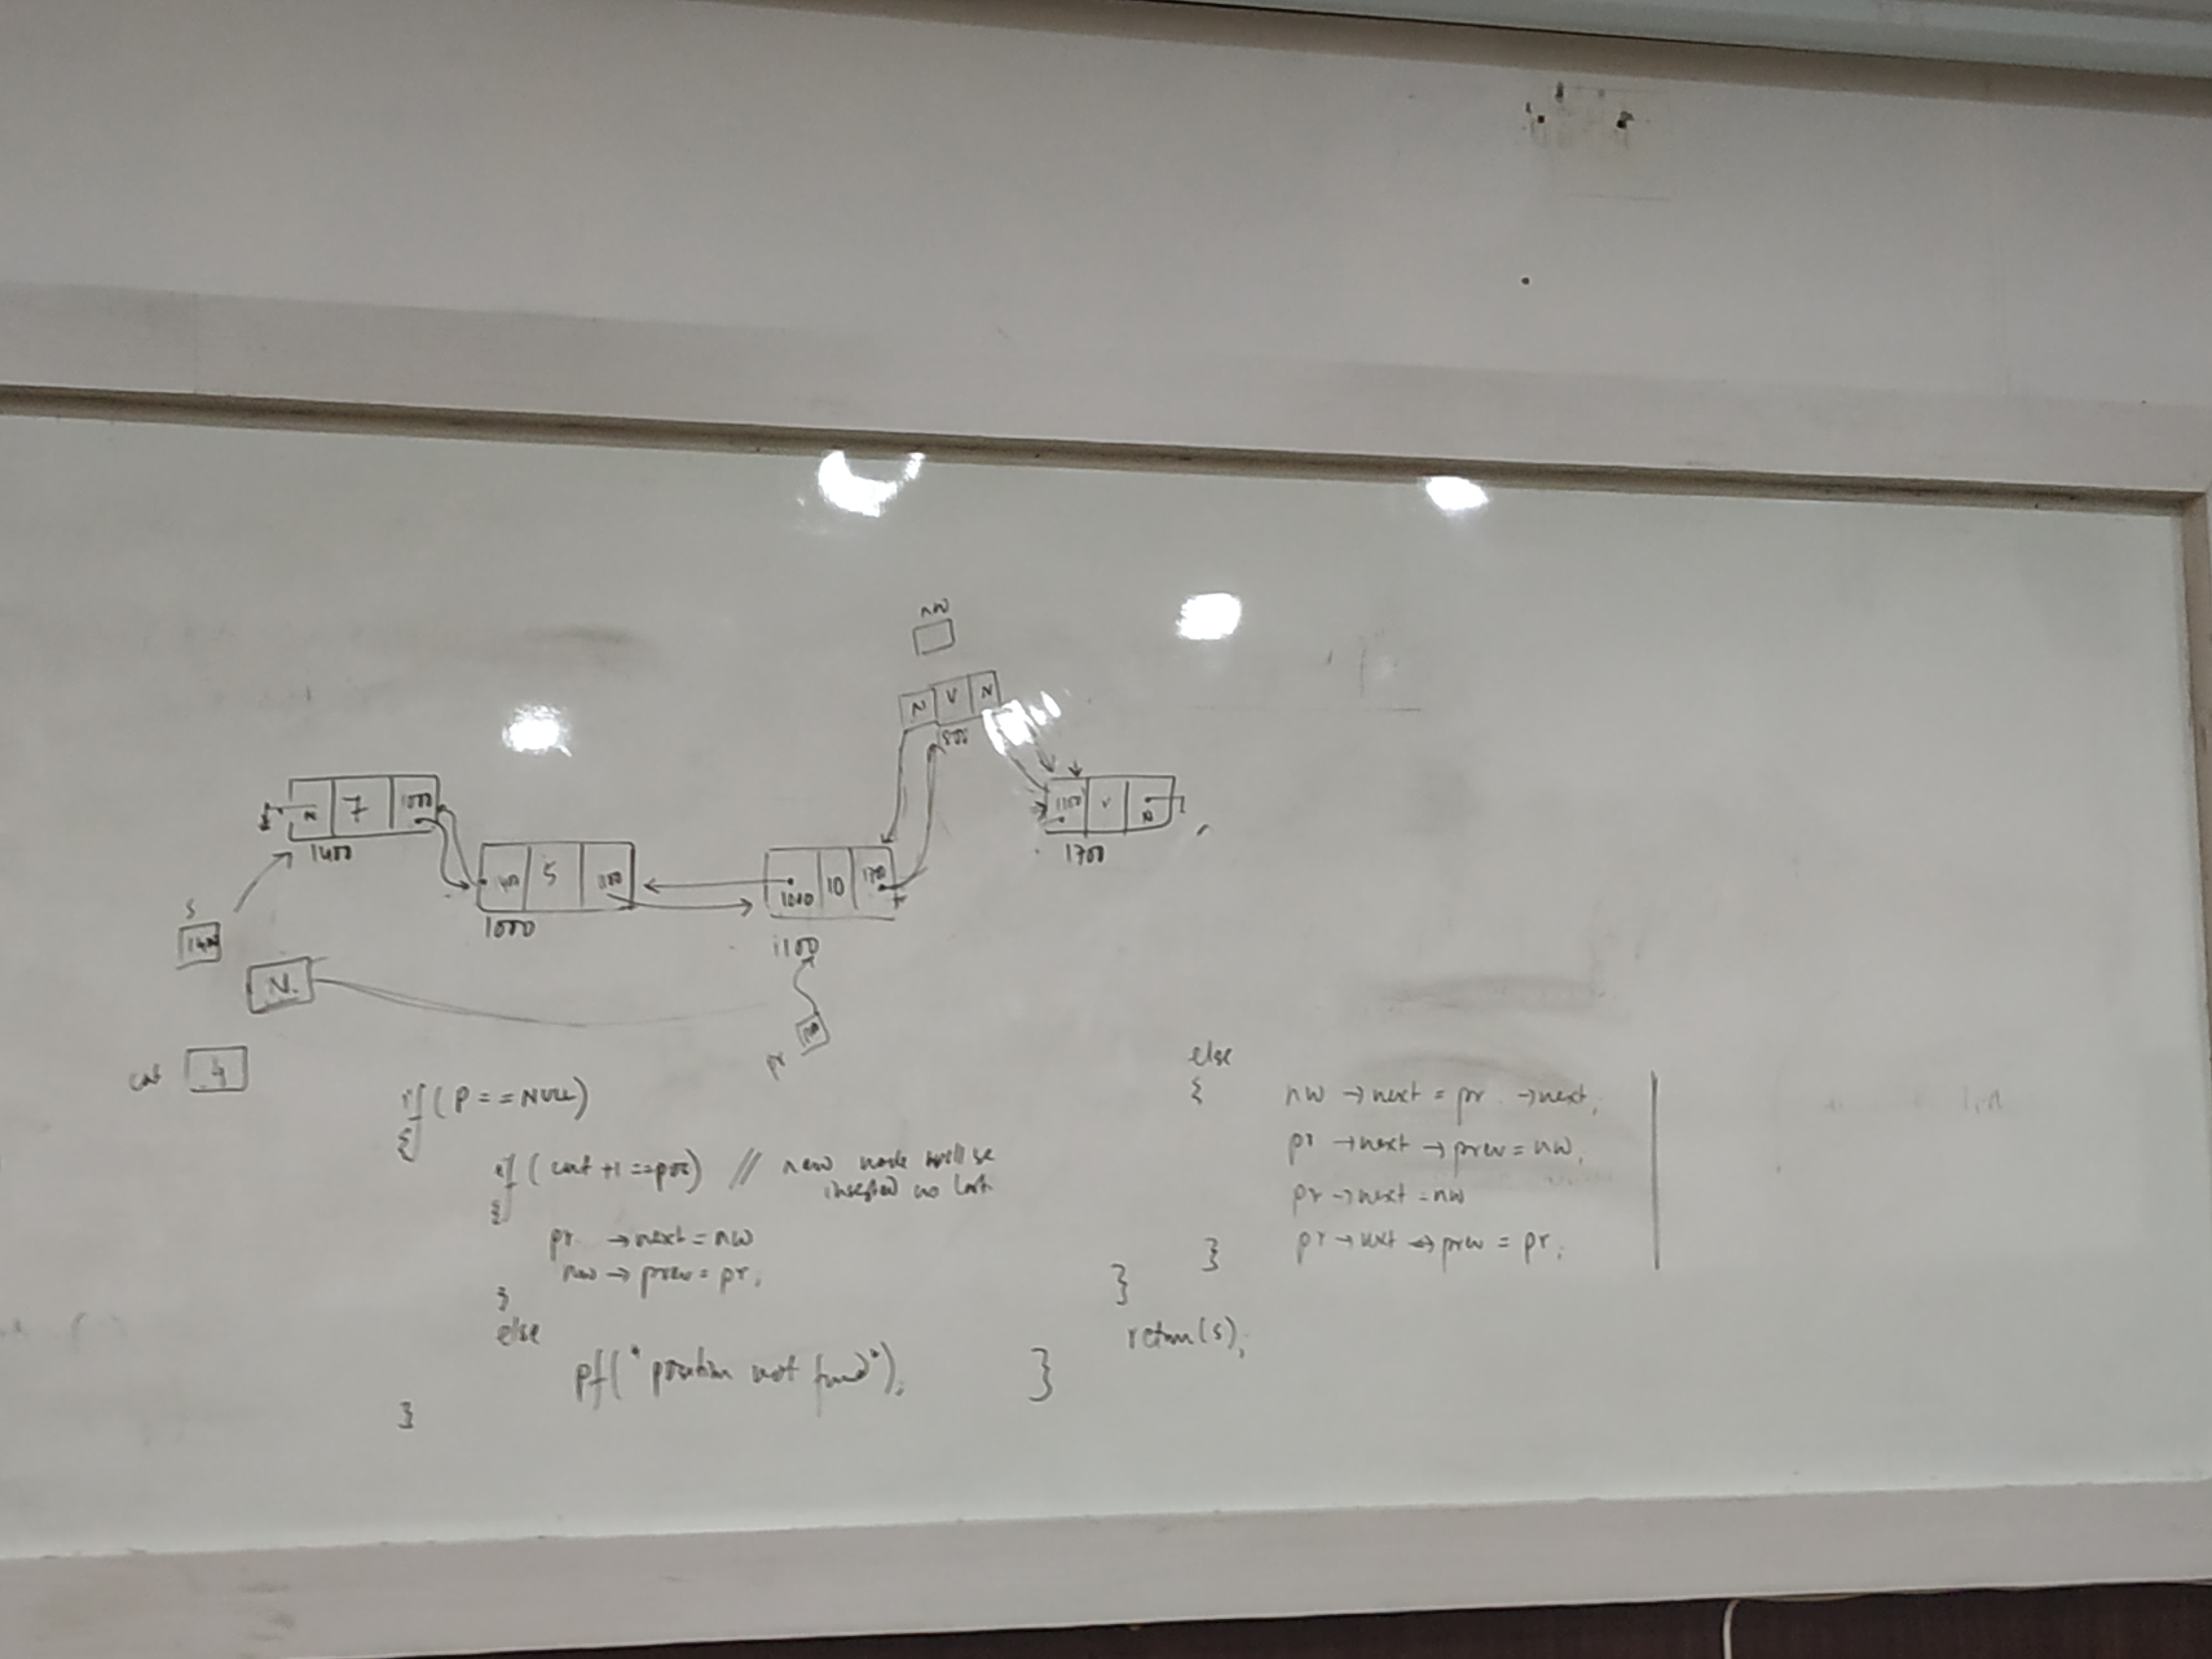 nw
N V N
800
N 7 1000
1400
5
1000
1000 10
1100
1100 V N
1700
S
N.
pr
cnt 4
if (P == NULL)
{
if (cnt +1 == pos) // new node will be
inserted as last
{
pr → next = nw
nw → prev = pr;
}
else
pf("position not found");
}
else
{
nw → next = pr → next;
pr → next → prev = nw;
pr → next = nw
pr → next → prev = pr;
}
}
return(s);
}